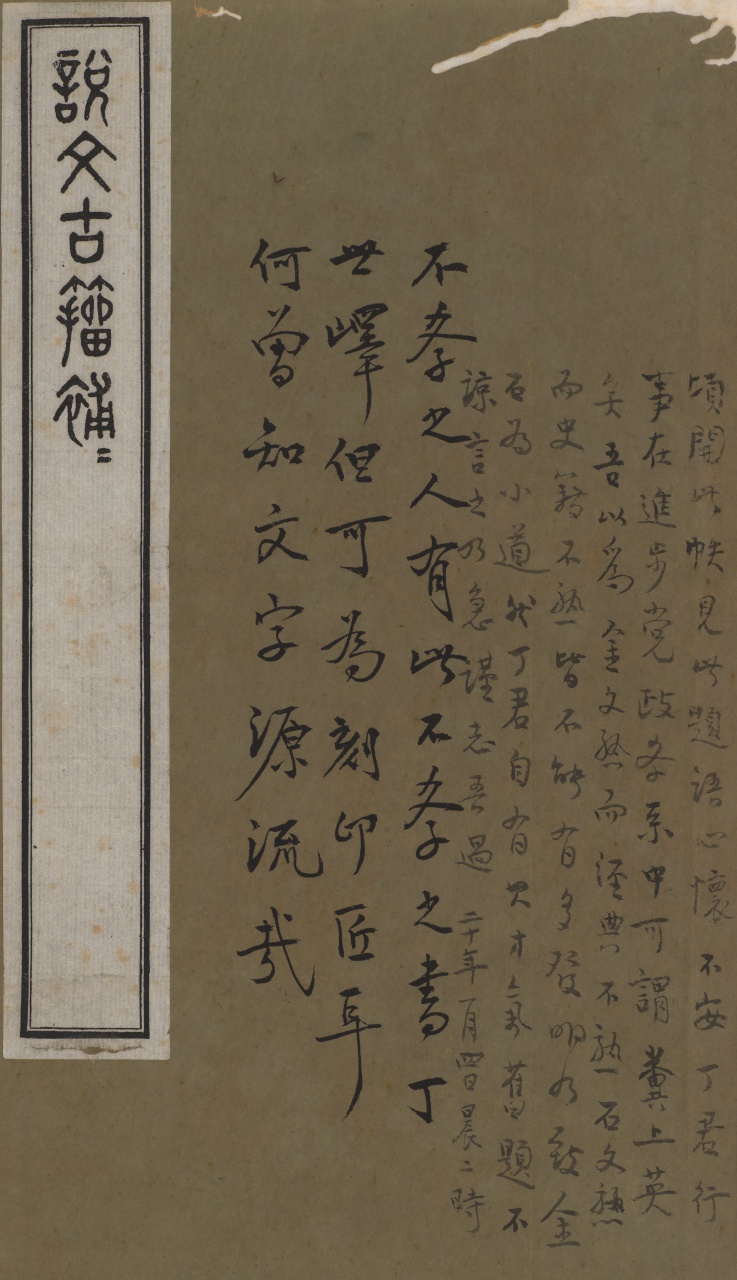 頃開此帙見此題語心懷不安丁君行
事在進步党政客系中可謂糞上英
矣吾以爲金文熟而經典不熟石文熟
而史籍不熟皆不能有多發明乃致金
石为小道然丁君自有其才氣舊題不
諒言之乃急謹志吾過 二十年一月四日晨二時
不孝之人有此不孝之書丁
世嶧但可为刻印匠耳
何曾知文字源流哉
說文古籀補〻